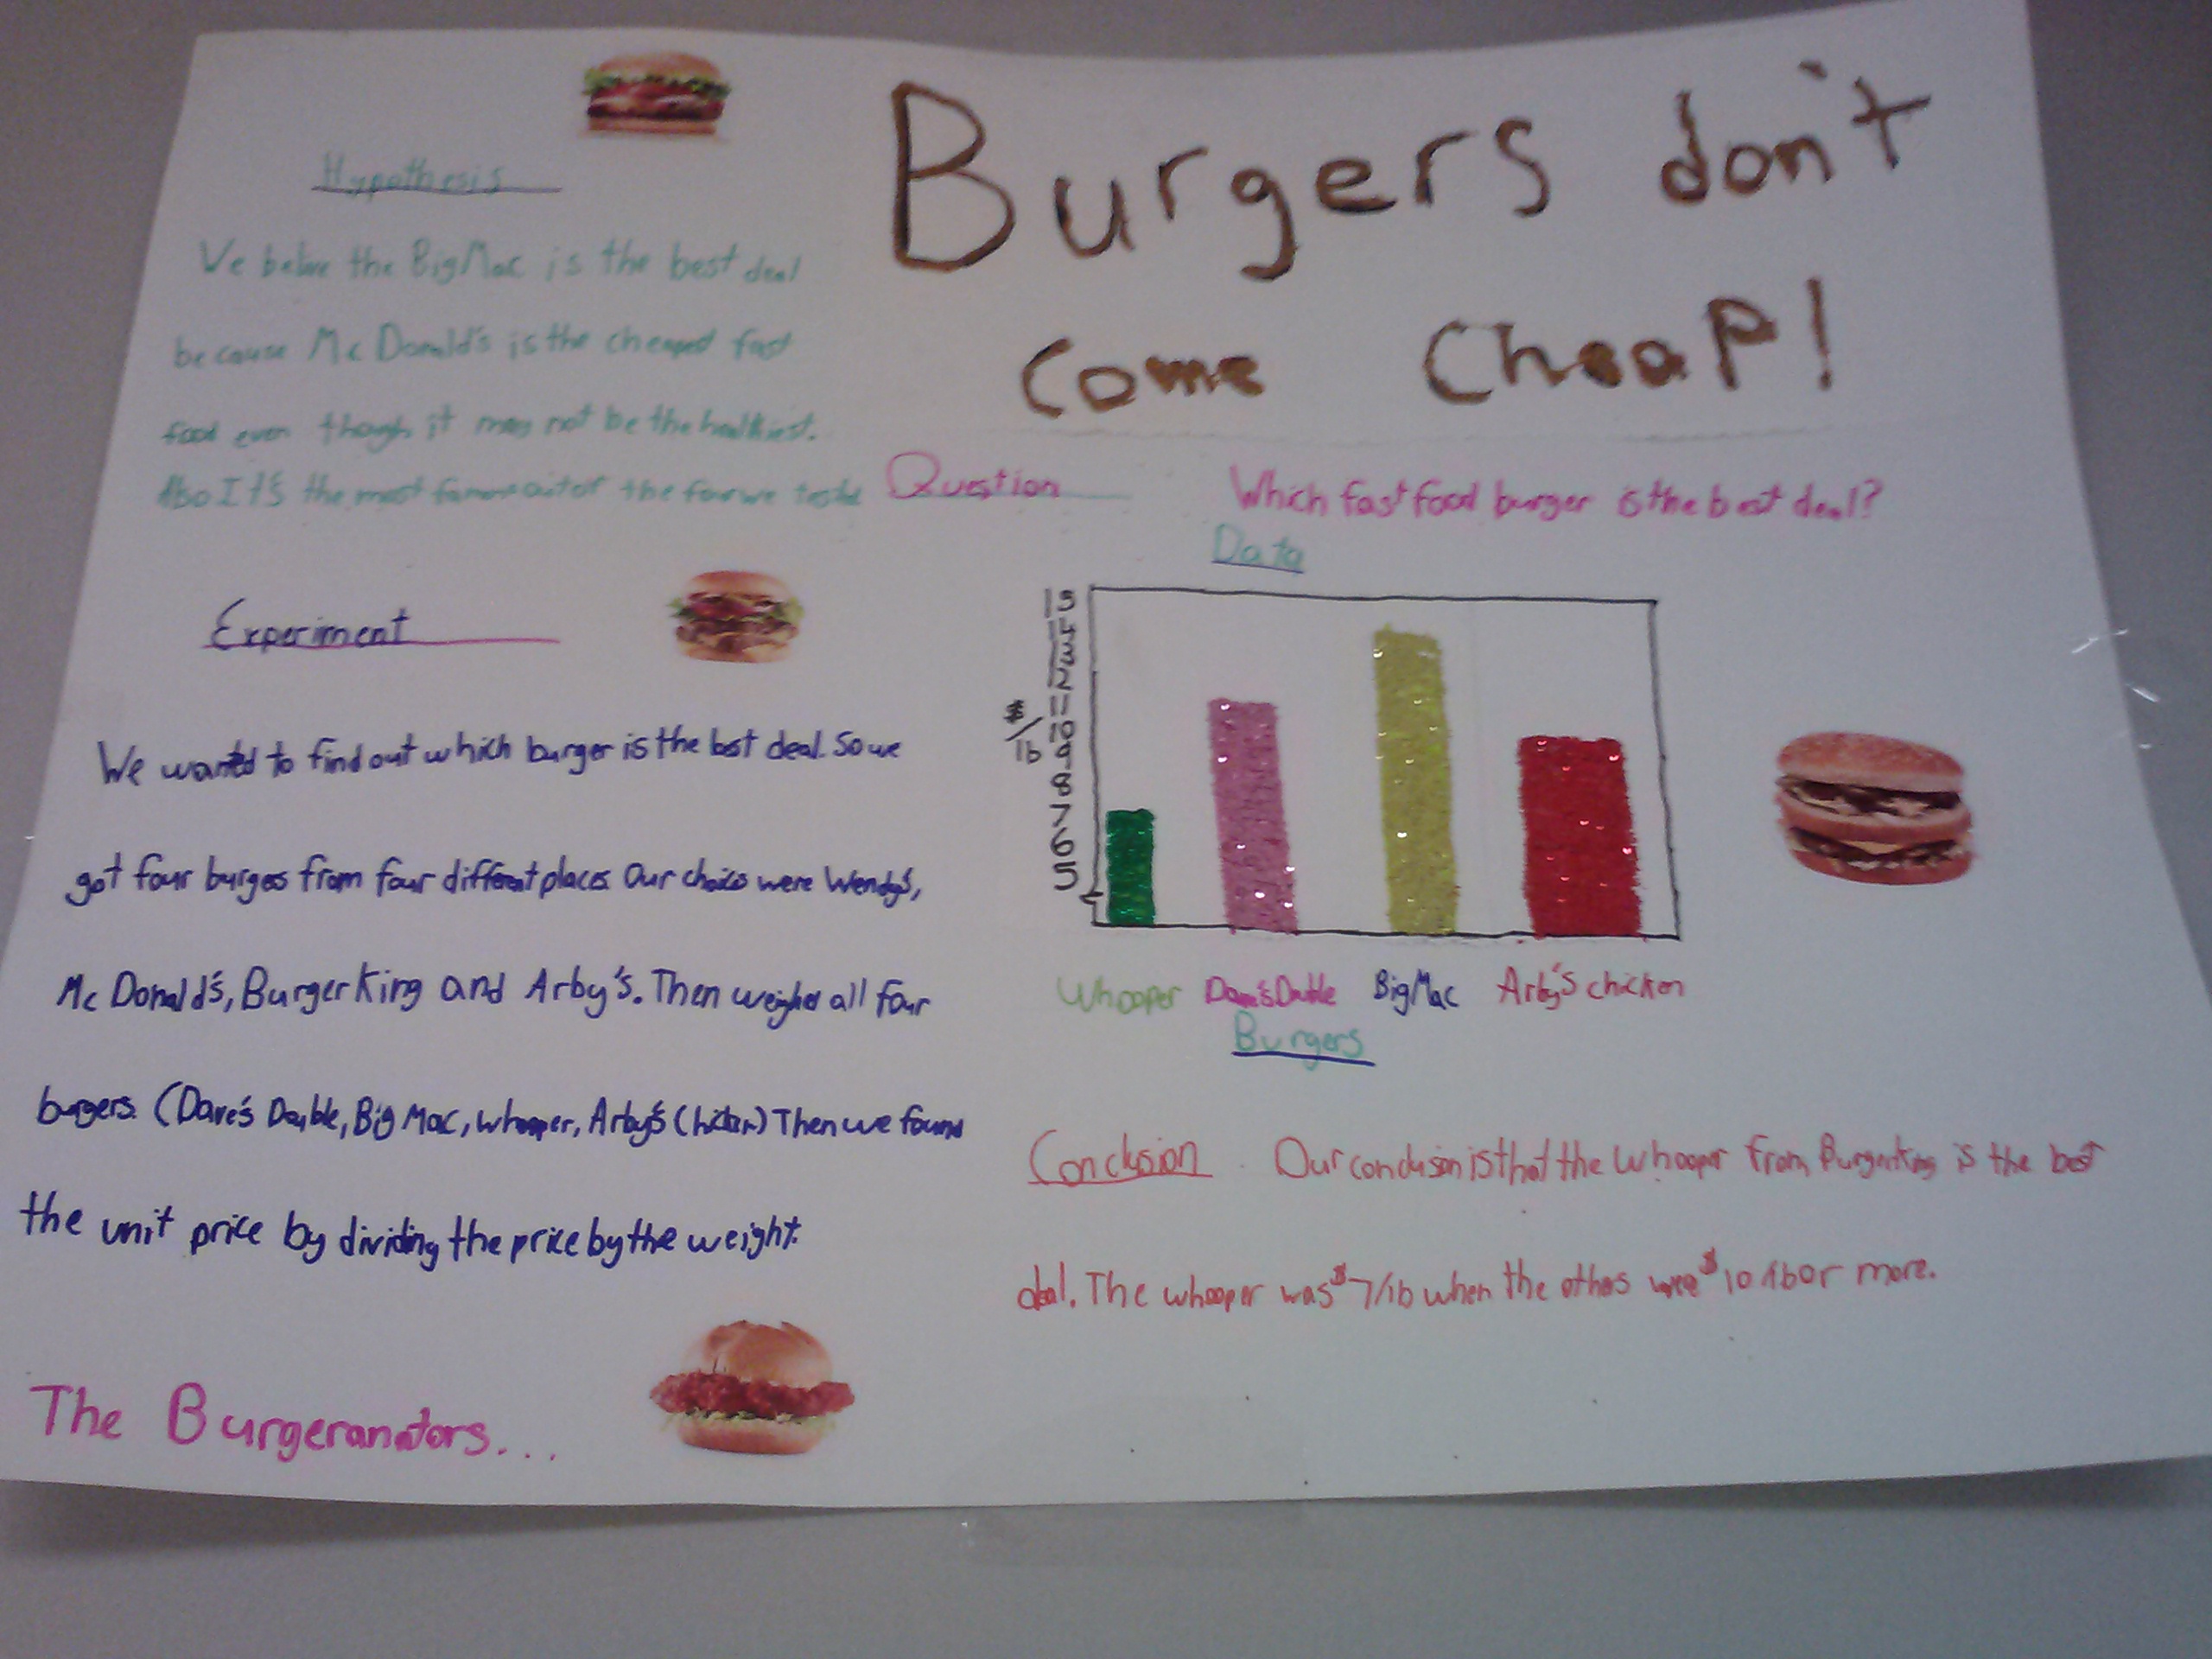 Burgers don't
come Cheap!
Hypothesis
We belive the BigMac is the best deal
because McDonald's is the cheapest fast
food even though it may not be the healthiest.
Also It's the most out of the four we
Experiment
We wanted to find out which burger is the best deal. So we
got four burges from four different places Our choics were Wendy's,
McDonald's, Burger King and Arby's. Then weighed all four
burgers. (Dave's Double, Big Mac, whooper, Arby's Chicken) Then we found
the unit price by dividing the price by the weight.
The Burgeranators...
Question Which fast food burger is the best deal?
Data
15
14
13
12
11
10
9
8
7
6
5
$/lb
Whooper Dave's Double BigMac Arby's chicken
Burgers
Conclusion Our conclusion is that the Whooper from Burgerking is the best
deal. The whooper was $7/lb when the others were $10/lb or more.